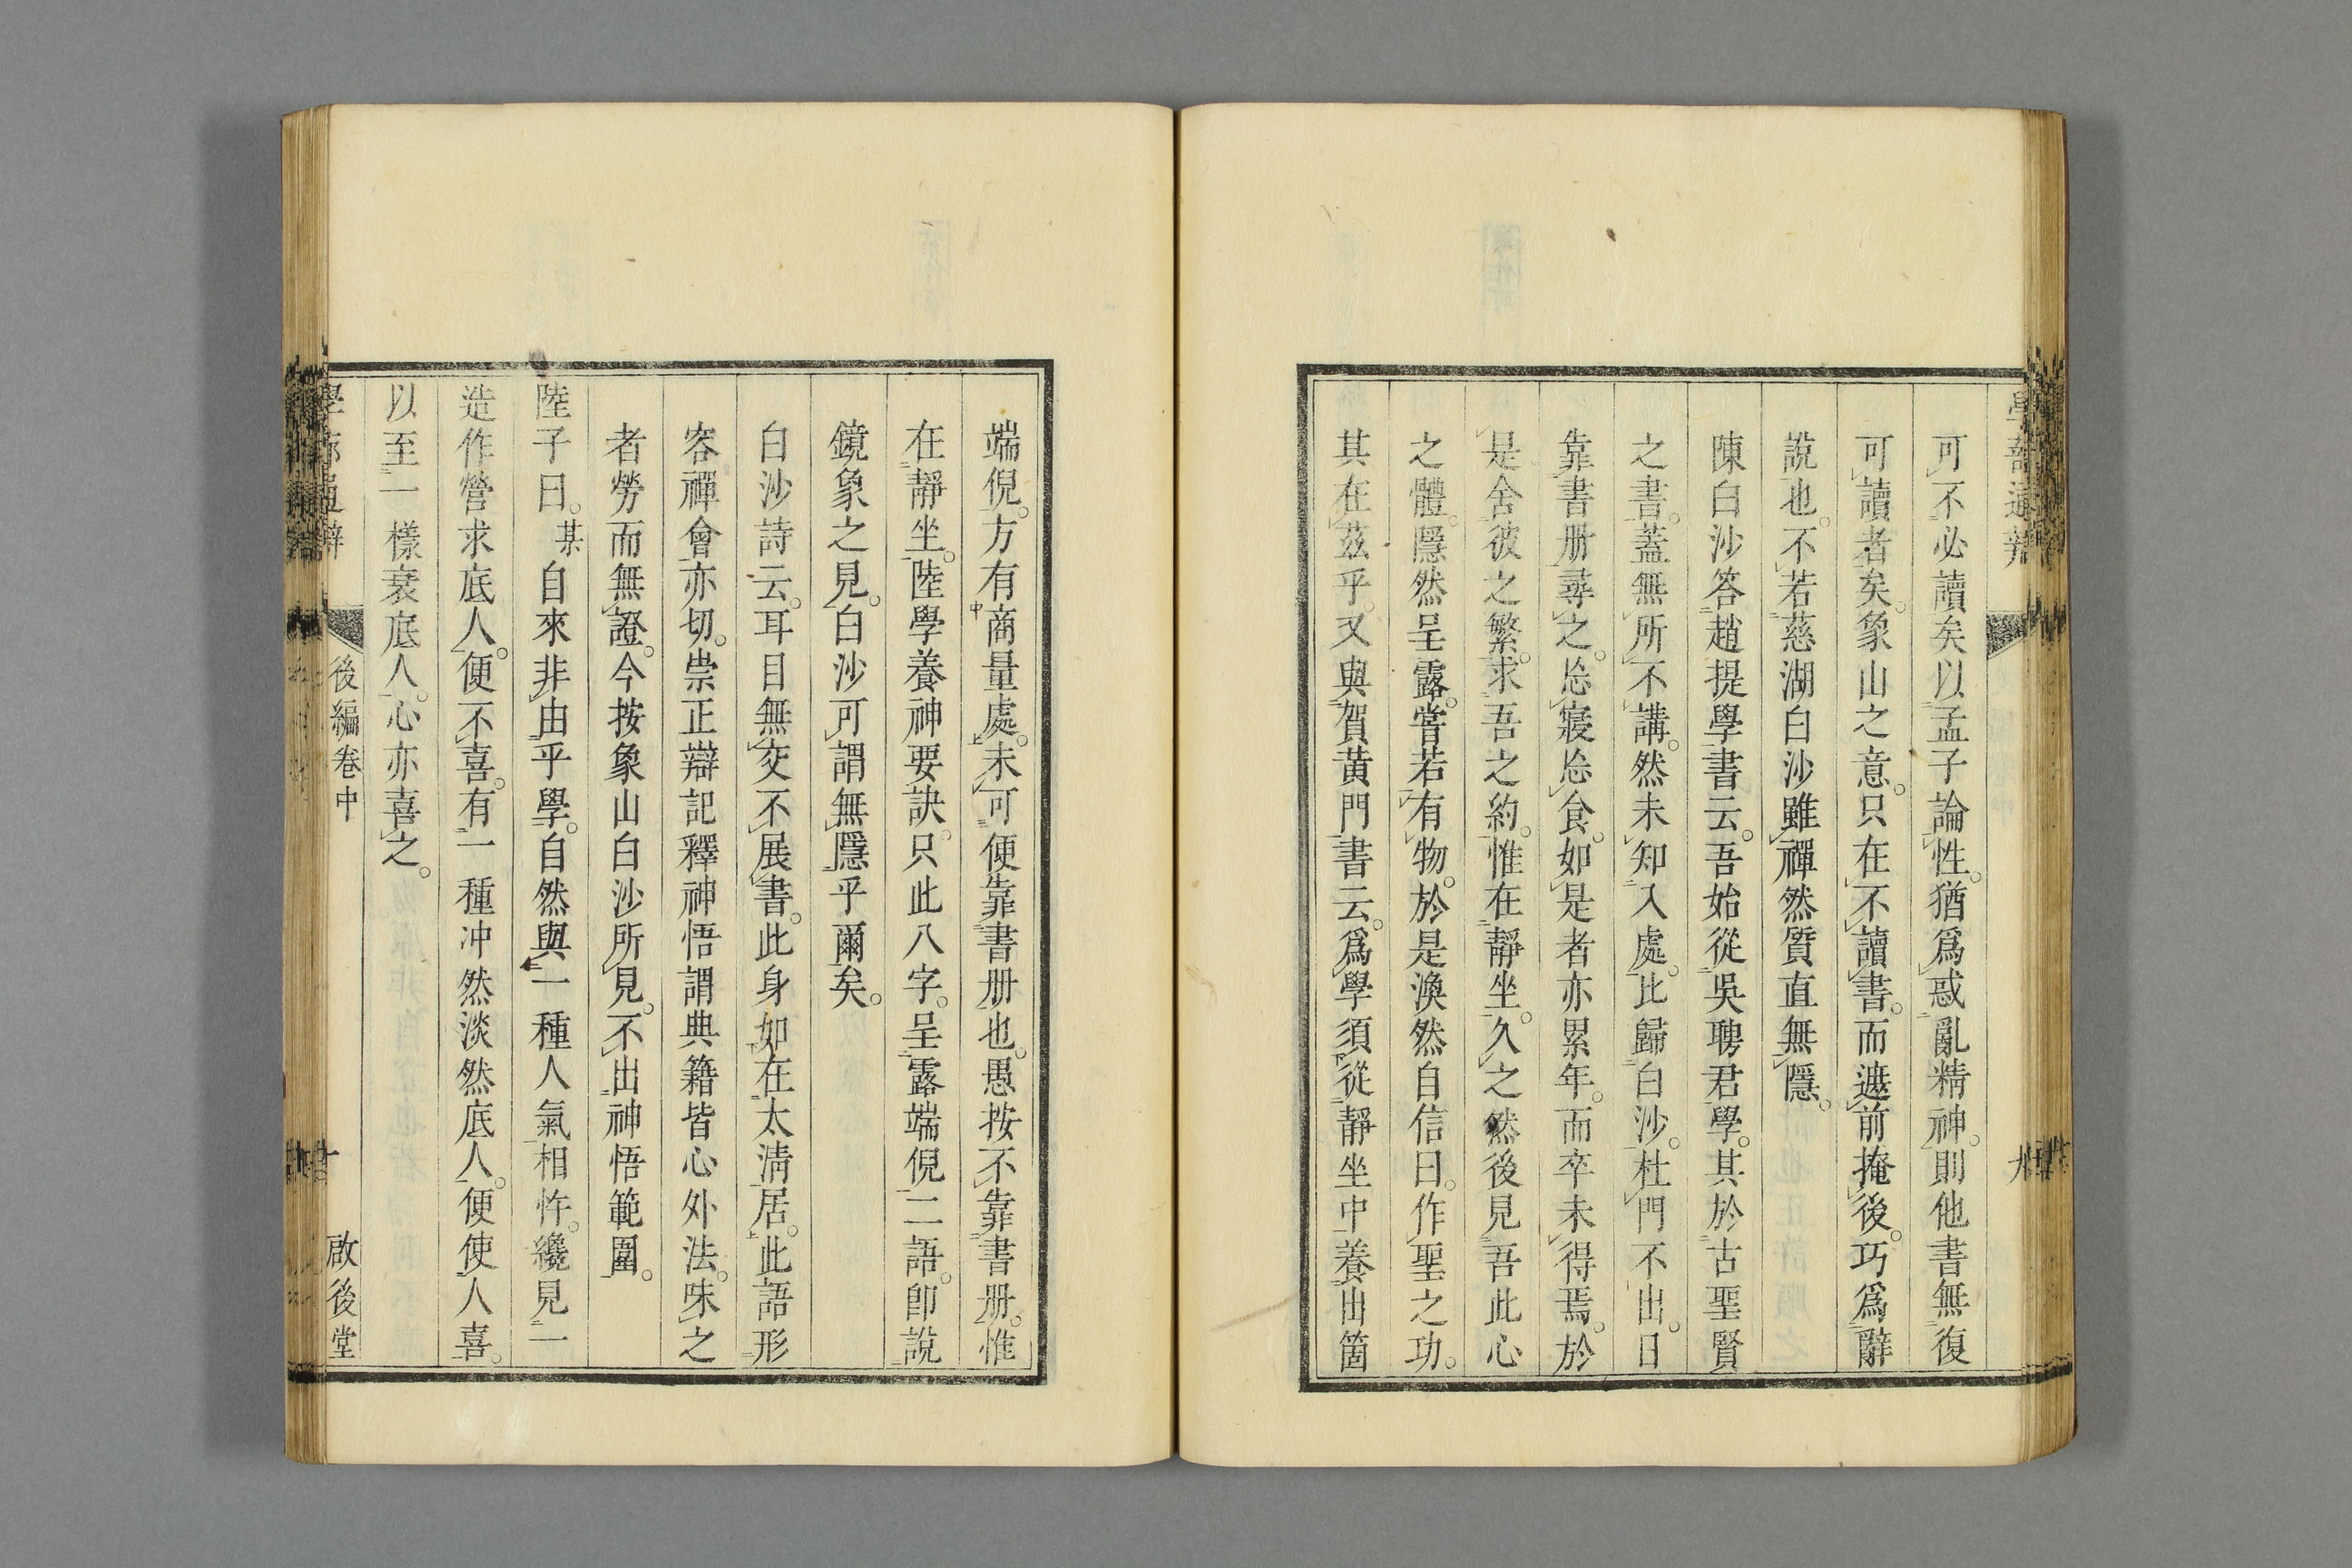 學蔀通辨
九
可不必讀矣以孟子論性。猶爲惑亂精神。則他書無復
可讀者矣。象山之意。只在不讀書。而遮前掩後。巧爲辭
說也。不若慈湖白沙雖禪然質直無隱。
陳白沙答趙提學書云。吾始從吳聘君學。其於古聖賢
之書。蓋無所不講。然未知入處。比歸白沙。杜門不出。日
靠書册尋之。忘寢忘食。如是者亦累年。而卒未得焉。於
是舍彼之繁。求吾之約。惟在靜坐。久之然後見吾此心
之體。隱然呈露。嘗若有物。於是渙然自信曰。作聖之功。
其在茲乎。又與賀黃門書云。爲學須從靜坐中養出箇
端倪。方有商量處。未可便靠書册也。愚按不靠書册。惟
在靜坐。陸學養神要訣。只此八字。呈露端倪二語。卽說
鏡象之見。白沙可謂無隱乎爾矣。
白沙詩云。耳目無交不展書。此身如在太淸居。此語形
容禪會亦切。崇正辯記釋神悟謂典籍皆心外法。味之
者勞而無證。今按象山白沙所見。不出神悟範圍。
陸子曰。某自來非由乎學。自然與一種人氣相忤。纔見一
造作營求底人。便不喜。有一種冲然淡然底人。便使人喜。
以至一樣衰底人。心亦喜之。
學蔀通辨
後編卷中
十
啟後堂